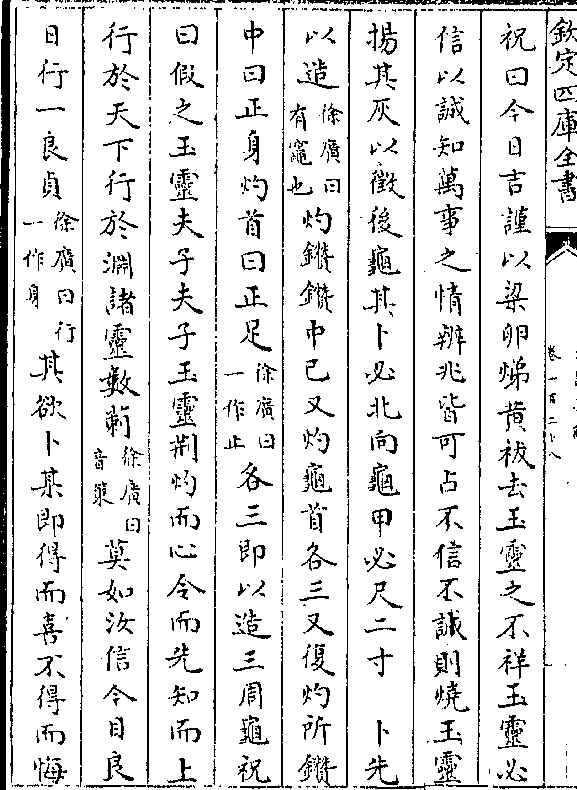 欽定四庫全書
卷一百二十八
祝曰今日吉謹以梁卵焍黄祓去玉靈之不祥玉靈必
信以誠知萬事之情辨兆皆可占不信不誠則燒玉靈
揚其灰以徵後龜其卜必北向龜甲必尺二寸　卜先
以造徐廣曰有竈也灼鑚鑚中已又灼龜首各三又復灼所鑚
中曰正身灼首曰正足徐廣曰一作止各三即以造三周龜祝
曰假之玉靈夫子夫子玉靈荆灼而心令而先知而上
行於天下行於淵諸靈數𥳑徐廣曰音策莫如汝信今日良
日行一良貞徐廣曰行一作身其欲卜某即得而喜不得而悔